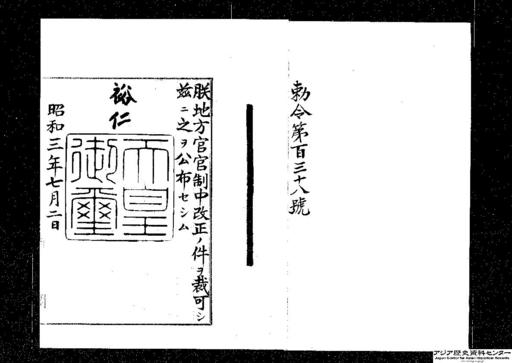 勅令第百三十八號
朕地方官官制中改正ノ件ヲ裁可シ
茲ニ之ヲ公布セシム
裕仁
天皇
御璽
昭和三年七月二日
アジア歴史資料センター
Japan Center for Asian Historical Records